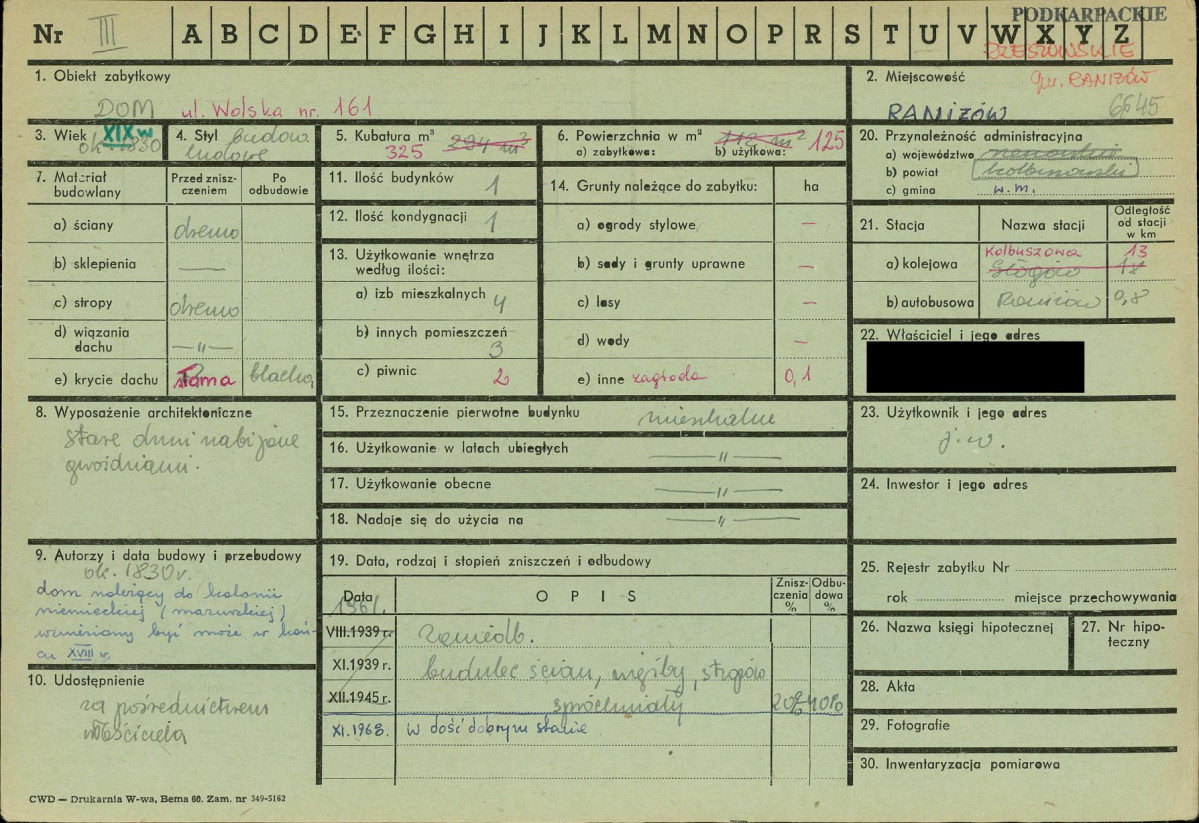 PODKARPACKIE
Nr III A B C D E F G H I J K L M N O P R S T U V W X Y Z
RZESZOWSKIE
1. Obiekt zabytkowy
DOM ul. Wolska nr. 161
2. Miejscowość
gm. RANIŻÓW
RANIŻÓW 6645
3. Wiek XIX w
ok. 1830
4. Styl budow.
ludowe
5. Kubatura m³ 294 m³
325
6. Powierzchnia w m² 112 m² 125
a) zabytkowa: b) użytkowa:
20. Przynależność administracyjna
a) województwo
b) powiat kolbuszowski
c) gmina w.m.
7. Materiał budowlany
Przed zniszczeniem
Po odbudowie
a) ściany drewno
b) sklepienia —
c) stropy drewno
d) wiązania dachu —"—
e) krycie dachu słoma blacha
11. Ilość budynków 1
12. Ilość kondygnacji 1
13. Użytkowanie wnętrza
według ilości:
a) izb mieszkalnych 4
b) innych pomieszczeń 3
c) piwnic 2
14. Grunty należące do zabytku: ha
a) ogrody stylowe —
b) sady i grunty uprawne —
c) lasy —
d) wody —
e) inne zagroda 0,1
21. Stacja
Nazwa stacji
Odległość
od stacji
w km
Kolbuszowa 13
a) kolejowa Głogów 18
b) autobusowa Raniżów 0,8
22. Właściciel i jego adres
8. Wyposażenie architektoniczne
stare drzwi nabijane
gwoździami.
15. Przeznaczenie pierwotne budynku mieszkalne
16. Użytkowanie w latach ubiegłych —"—
17. Użytkowanie obecne —"—
18. Nadaje się do użycia na —"—
23. Użytkownik i jego adres
j.w.
24. Inwestor i jego adres
9. Autorzy i data budowy i przebudowy
ok. 1830 r.
dom należący do kolonii
niemieckiej (mazurskiej)
wzniesiony być może w koń-
cu XVIII w.
10. Udostępnienie
za pośrednictwem
właściciela
19. Data, rodzaj i stopień zniszczeń i odbudowy
Data
O P I S
Znisz-
czenia
%
Odbu-
dowa
%
1961.
VIII.1939 r. zaniedb.
XI.1939 r. budulec ścian, więźby, stropów
XII.1945 r. spróchniały 20% 40%
XI.1968. w dość dobrym stanie
25. Rejestr zabytku Nr
rok miejsce przechowywania
26. Nazwa księgi hipotecznej
27. Nr hipo-
teczny
28. Akta
29. Fotografie
30. Inwentaryzacja pomiarowa
CWD — Drukarnia W-wa, Bema 60. Zam. nr 349-5162